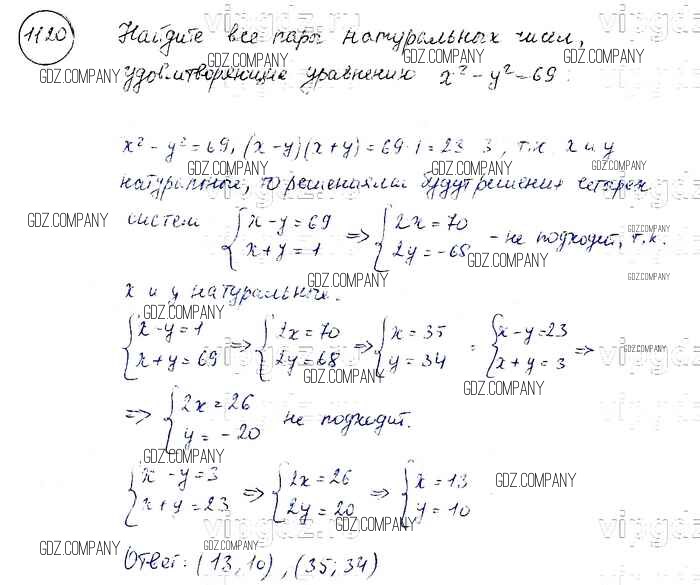 1120 Найдите все пары натуральных чисел,
удовлетворяющие уравнению x² - y² = 69.
x² - y² = 69, (x-y)(x+y) = 69·1 = 23·3, т.к. x и y
натуральные, то решениями будут решения четырех
систем { x-y=69 x+y=1 => { 2x=70 2y=-68 - не подходит, т.к.
x и y натуральные.
{ x-y=1 x+y=69 => { 2x=70 2y=68 => { x=35 y=34 : { x-y=23 x+y=3 =>
=> { 2x=26 y=-20 не подходит.
{ x-y=3 x+y=23 => { 2x=26 2y=20 => { x=13 y=10
Ответ: (13,10), (35;34)
GDZ.COMPANY